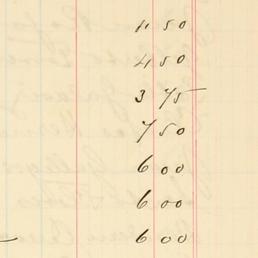 4 50
4 50
3 75
7 50
6 00
6 00
6 00